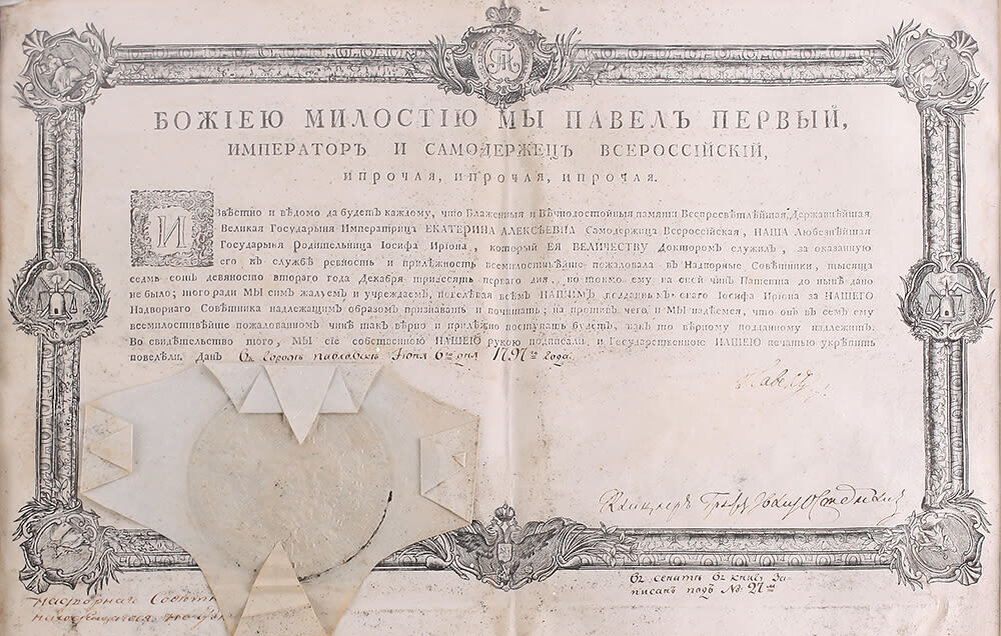 БОЖІЕЮ МИЛОСТІЮ МЫ ПАВЕЛЪ ПЕРВЫЙ,
ИМПЕРАТОРЪ И САМОДЕРЖЕЦЪ ВСЕРОССІЙСКІЙ,
И ПРОЧАЯ, И ПРОЧАЯ, И ПРОЧАЯ.
Извѣстно и вѣдомо да будетъ каждому, что Блаженныя и Вѣчнодостойныя памяти Всепресвѣтлѣйшая Державнѣйшая
Великая Государыня Императрица ЕКАТЕРИНА АЛЕКСѢЕВНА Самодержица Всероссійская, НАША Любезнѣйшая
Государыня Родительница Іосифа Иріона, который ЕЯ ВЕЛИЧЕСТВУ Докторомъ служилъ, за оказанную
его къ службѣ ревность и прилѣжность всемилостивѣйше пожаловала въ Надворные Совѣтники, тысяща
седмь сотъ девяносто втораго года Декабря тридесять перваго дня, но токмо ему на оный чинъ Патента до нынѣ дано
не было; того ради МЫ симъ жалуемъ и учреждаемъ, повелѣвая всѣмъ НАШИМЪ подданнымъ онаго Іосифа Иріона за НАШЕГО
Надворнаго Совѣтника надлежащимъ образомъ признавать и почитать; на противъ чего и МЫ надѣемся, что онъ въ семъ ему
всемилостивѣйше пожалованномъ чинѣ такъ вѣрно и прилѣжно поступать будетъ, какъ то вѣрному подданному надлежитъ.
Во свидѣтельство того, МЫ сіе собственною НАШЕЮ рукою подписали, и Государственною НАШЕЮ печатью укрѣпить
повелѣли. Данъ Въ городѣ Павловскѣ Іюня 6го дня 1797го года.
Павелъ
Канцлеръ Графъ
въ сенатѣ въ книгѣ за
писанъ подъ №: 27мъ
надворнаго